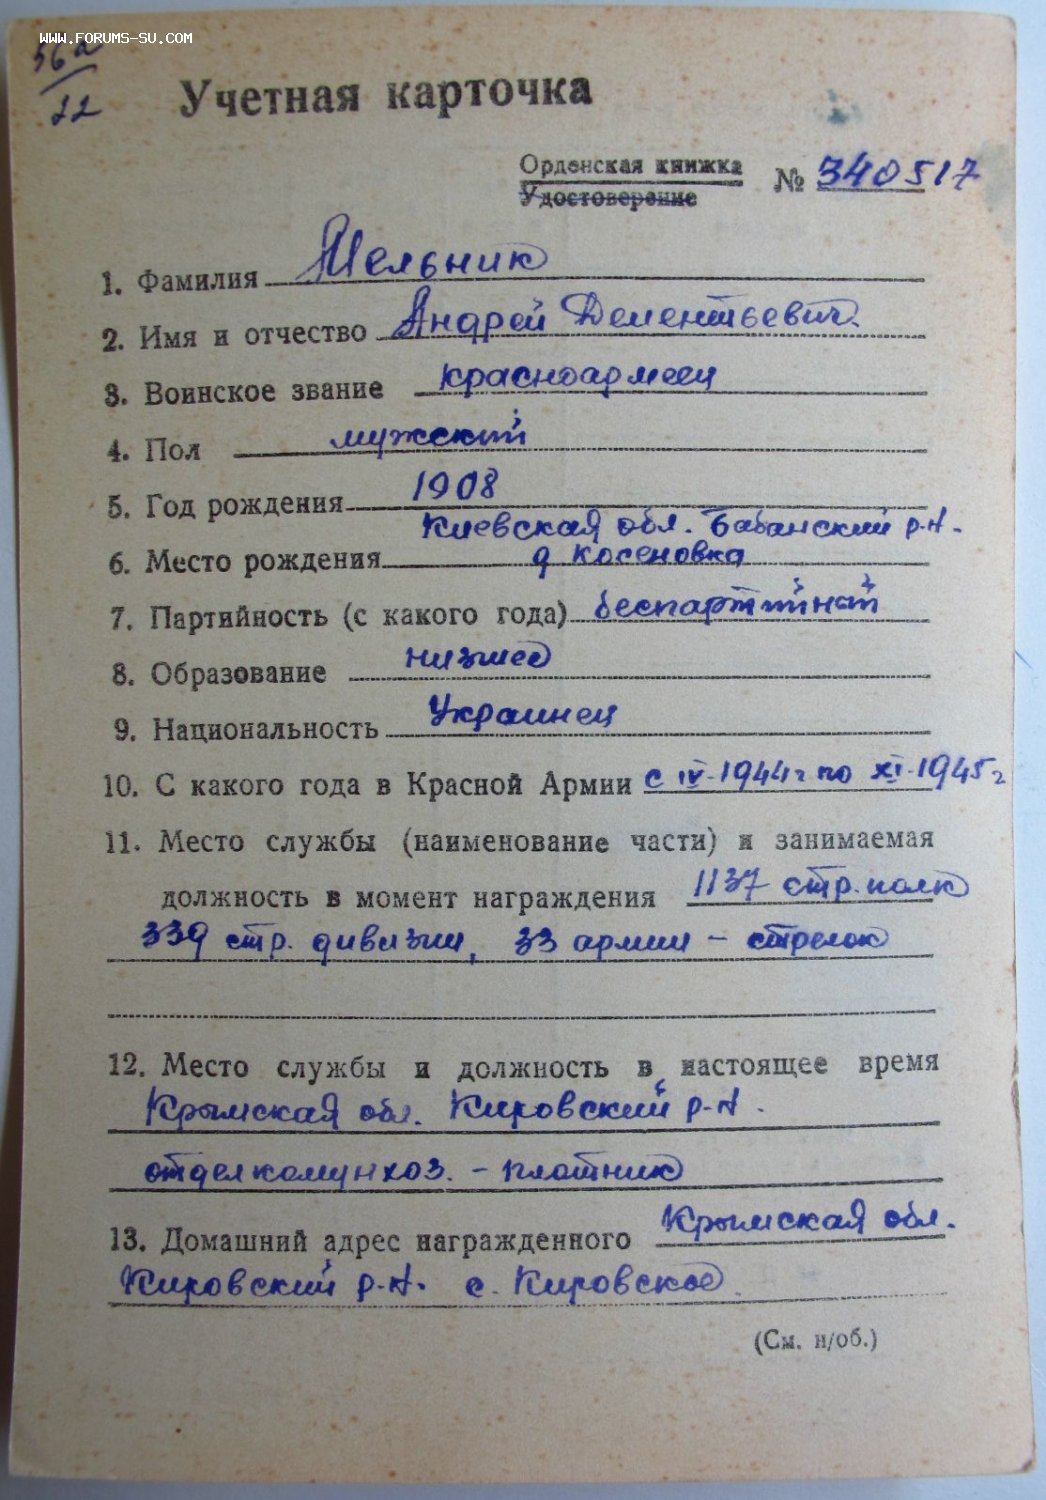 WWW.FORUMS-SU.COM
56а
22
Учетная карточка
Орденская книжка
Удостоверение
№ 340517
1. Фамилия Мельник
2. Имя и отчество Андрей Дементьевич.
3. Воинское звание красноармеец
4. Пол мужской
5. Год рождения 1908
Киевская обл. Бабанский р-н.
6. Место рождения д Косеновка
7. Партийность (с какого года) беспартийный
8. Образование низшее
9. Национальность Украинец
10. С какого года в Красной Армии с IV-1944г по XI-1945г
11. Место службы (наименование части) и занимаемая
должность в момент награждения 1137 стр. полк
339 стр. дивизии, 33 армии – стрелок
12. Место службы и должность в настоящее время
Крымская обл. Кировский р-н.
отделкомунхоз. – плотник
13. Домашний адрес награжденного Крымская обл.
Кировский р-н. с. Кировское
(См. н/об.)